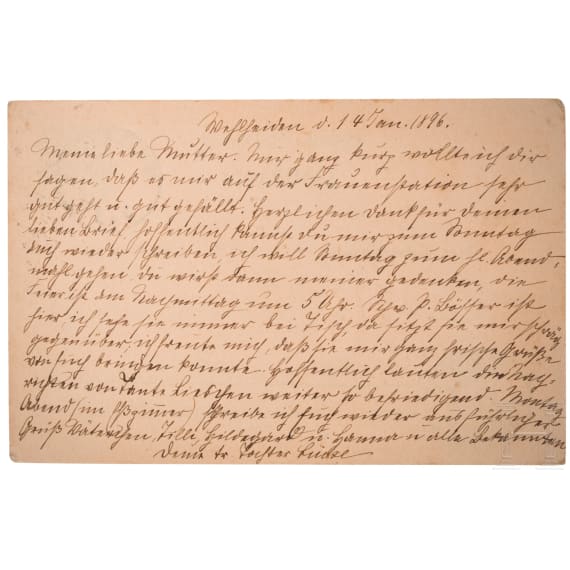 Wehlheiden d. 14 Jan. 1896.
Meine liebe Mutter. Nur ganz kurz wollte ich dir
sagen, daß es mir auf der Frauenstation sehr
gut geht u. gut gefällt. Herzlichen Dank für deinen
lieben Brief hoffentlich kannst du mir zum Sonntag
auch wieder schreiben, ich will Sonntag zum hl. Abend-
mahl gehen du wirst dann meiner gedenken, die
Feier ist am Nachmittag um 5 Uhr. Schw. P. Bösser ist
hier ich sehe sie immer bei Tisch, da sitzt sie mir schräg
gegenüber ich freute mich, daß sie mir ganz frische Grüße
von Euch bringen konnte. Hoffentlich lauten die Nach-
richten von Tante Lieschen weiter so befriedigend. Montag
Abend (im) schreibe ich Euch wieder ausführlicher
Gruß Väterchen, Tilli, Hildegard u. Hanna u alle Bekannten
Deine tr. Tochter